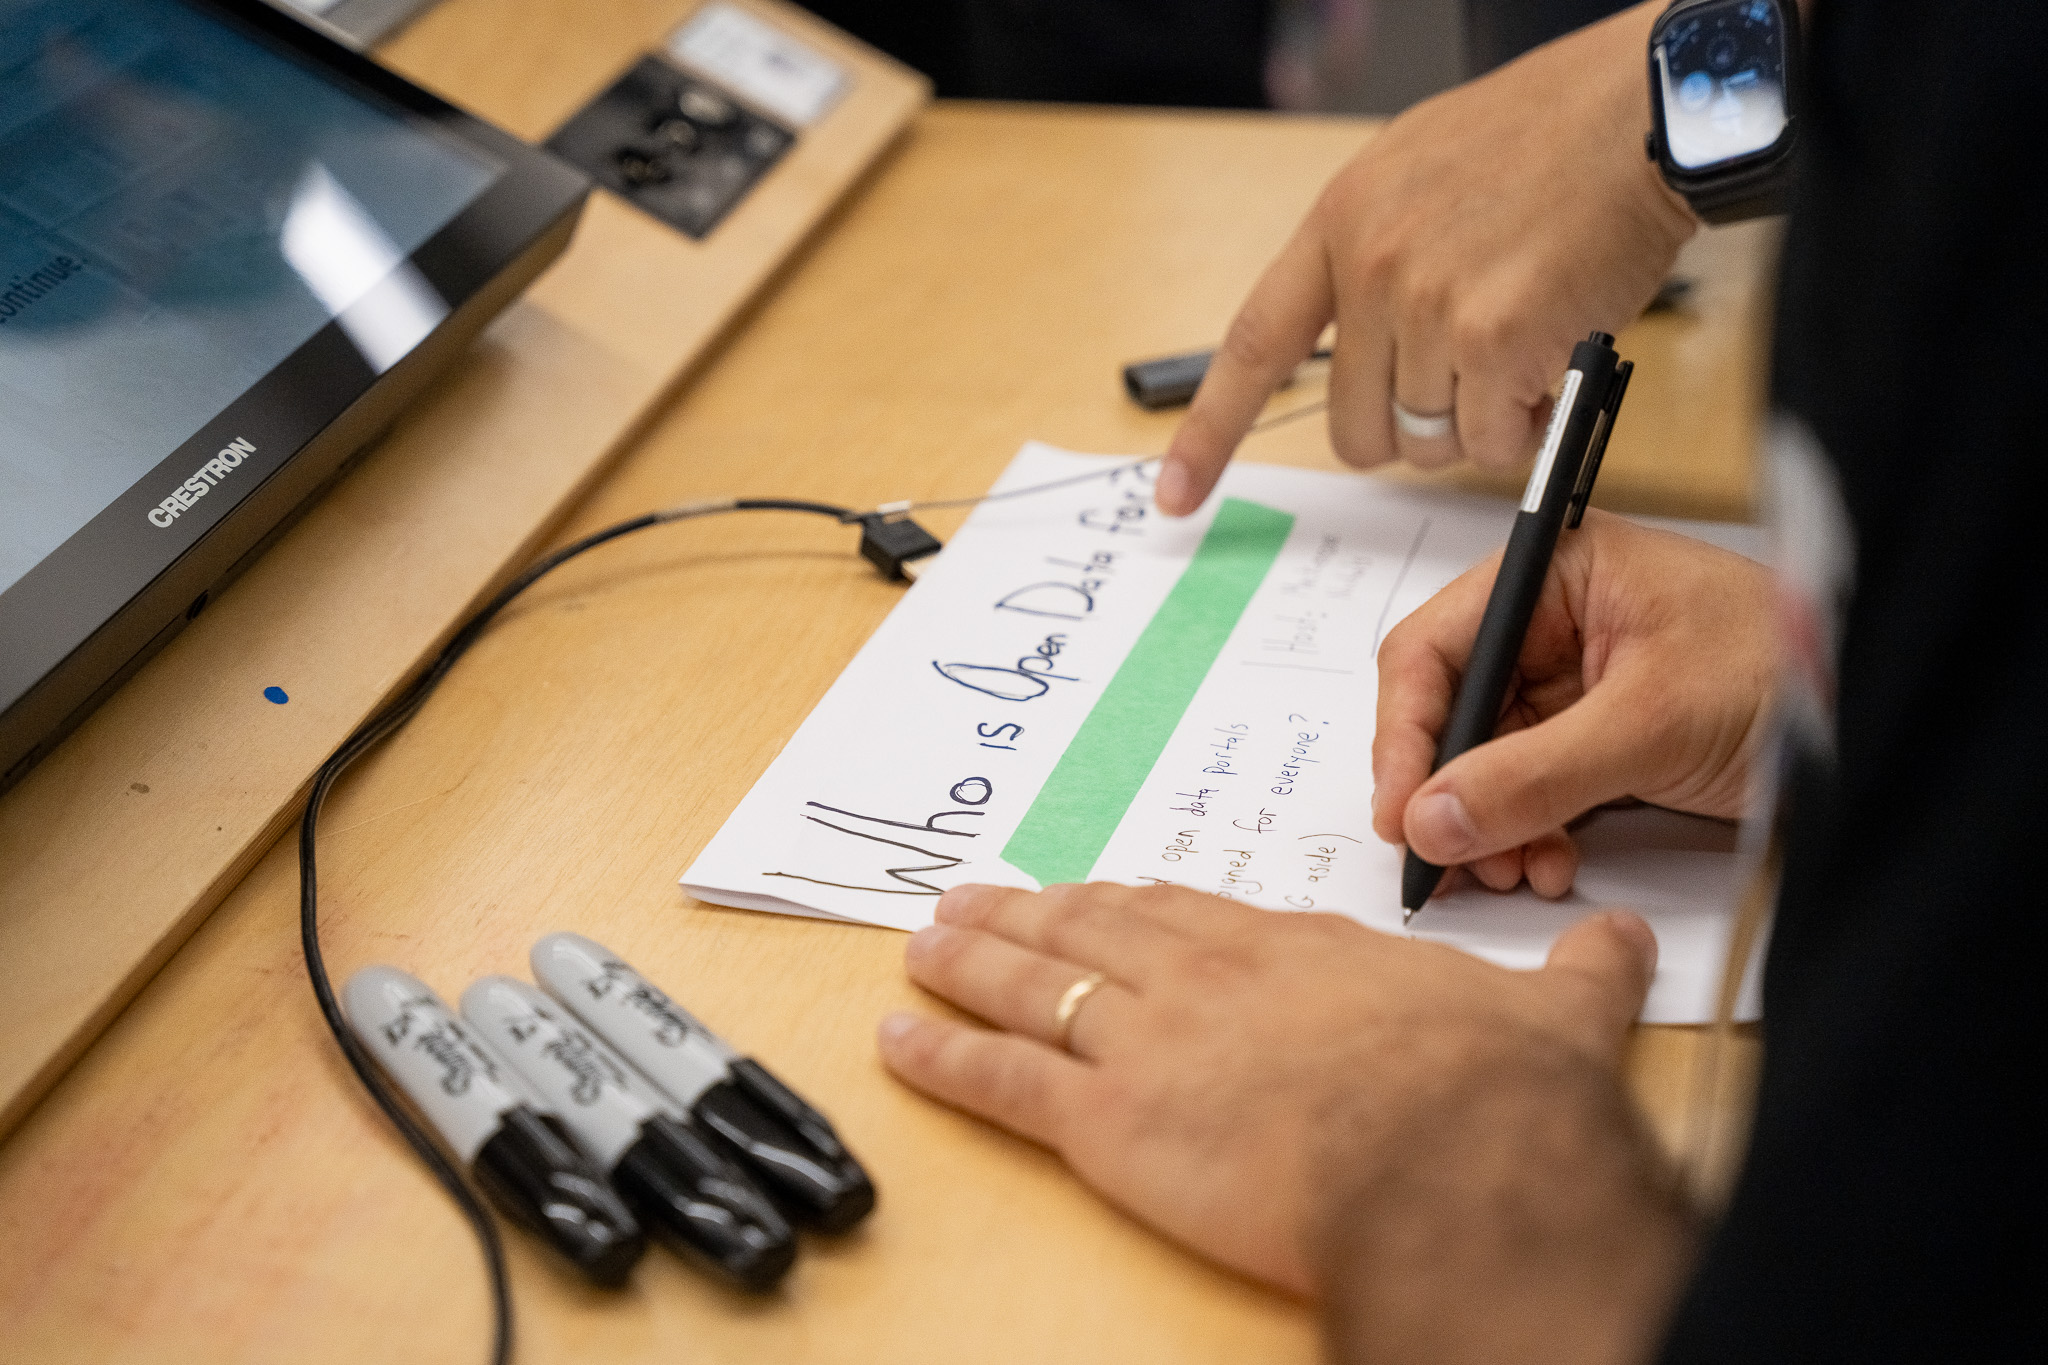 continue.
CRESTRON
Who is Open Data for?
Host:
open data portals
signed for everyone?
G aside)
Sharpie
Sharpie
Sharpie